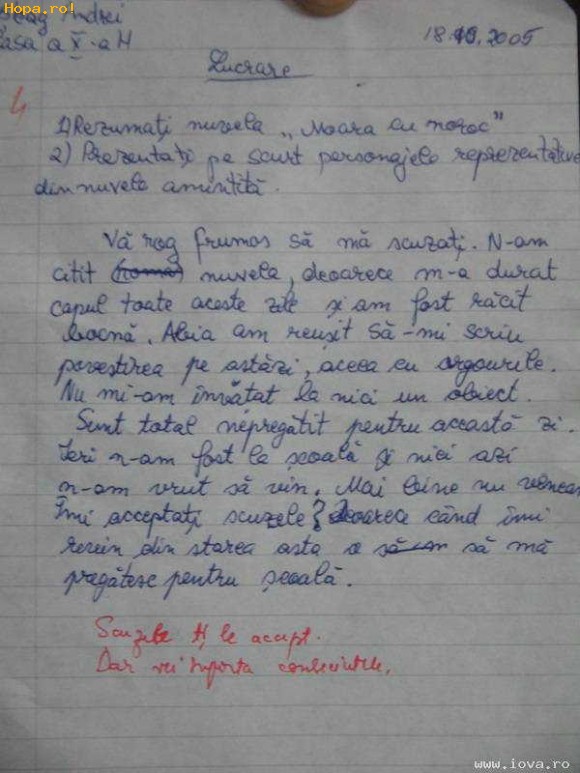 Hopa.ro!
Andrei
asa a X-a H
18.10.2005
Lucrare
4
1) Rezumați nuvela „Moara cu noroc"
2) Prezentați pe scurt personajele reprezentative
din nuvela amintită.
Vă rog frumos să mă scuzați. N-am
citit nuvela, deoarece m-a durat
capul toate aceste zile și am fost răcit
bocnă. Abia am reușit să-mi scriu
povestirea pe astăzi, aceea cu argourile.
Nu mi-am învățat la nici un obiect.
Sunt total nepregătit pentru această zi.
Ieri n-am fost la școală și nici azi
n-am vrut să vin. Mai bine nu veneam
Îmi acceptați scuzele? deoarea când îmi
revin din starea asta o să mă
pregătesc pentru școală.
Scuzele ți le accept.
Dar vei suporta consecințele.
www.iova.ro